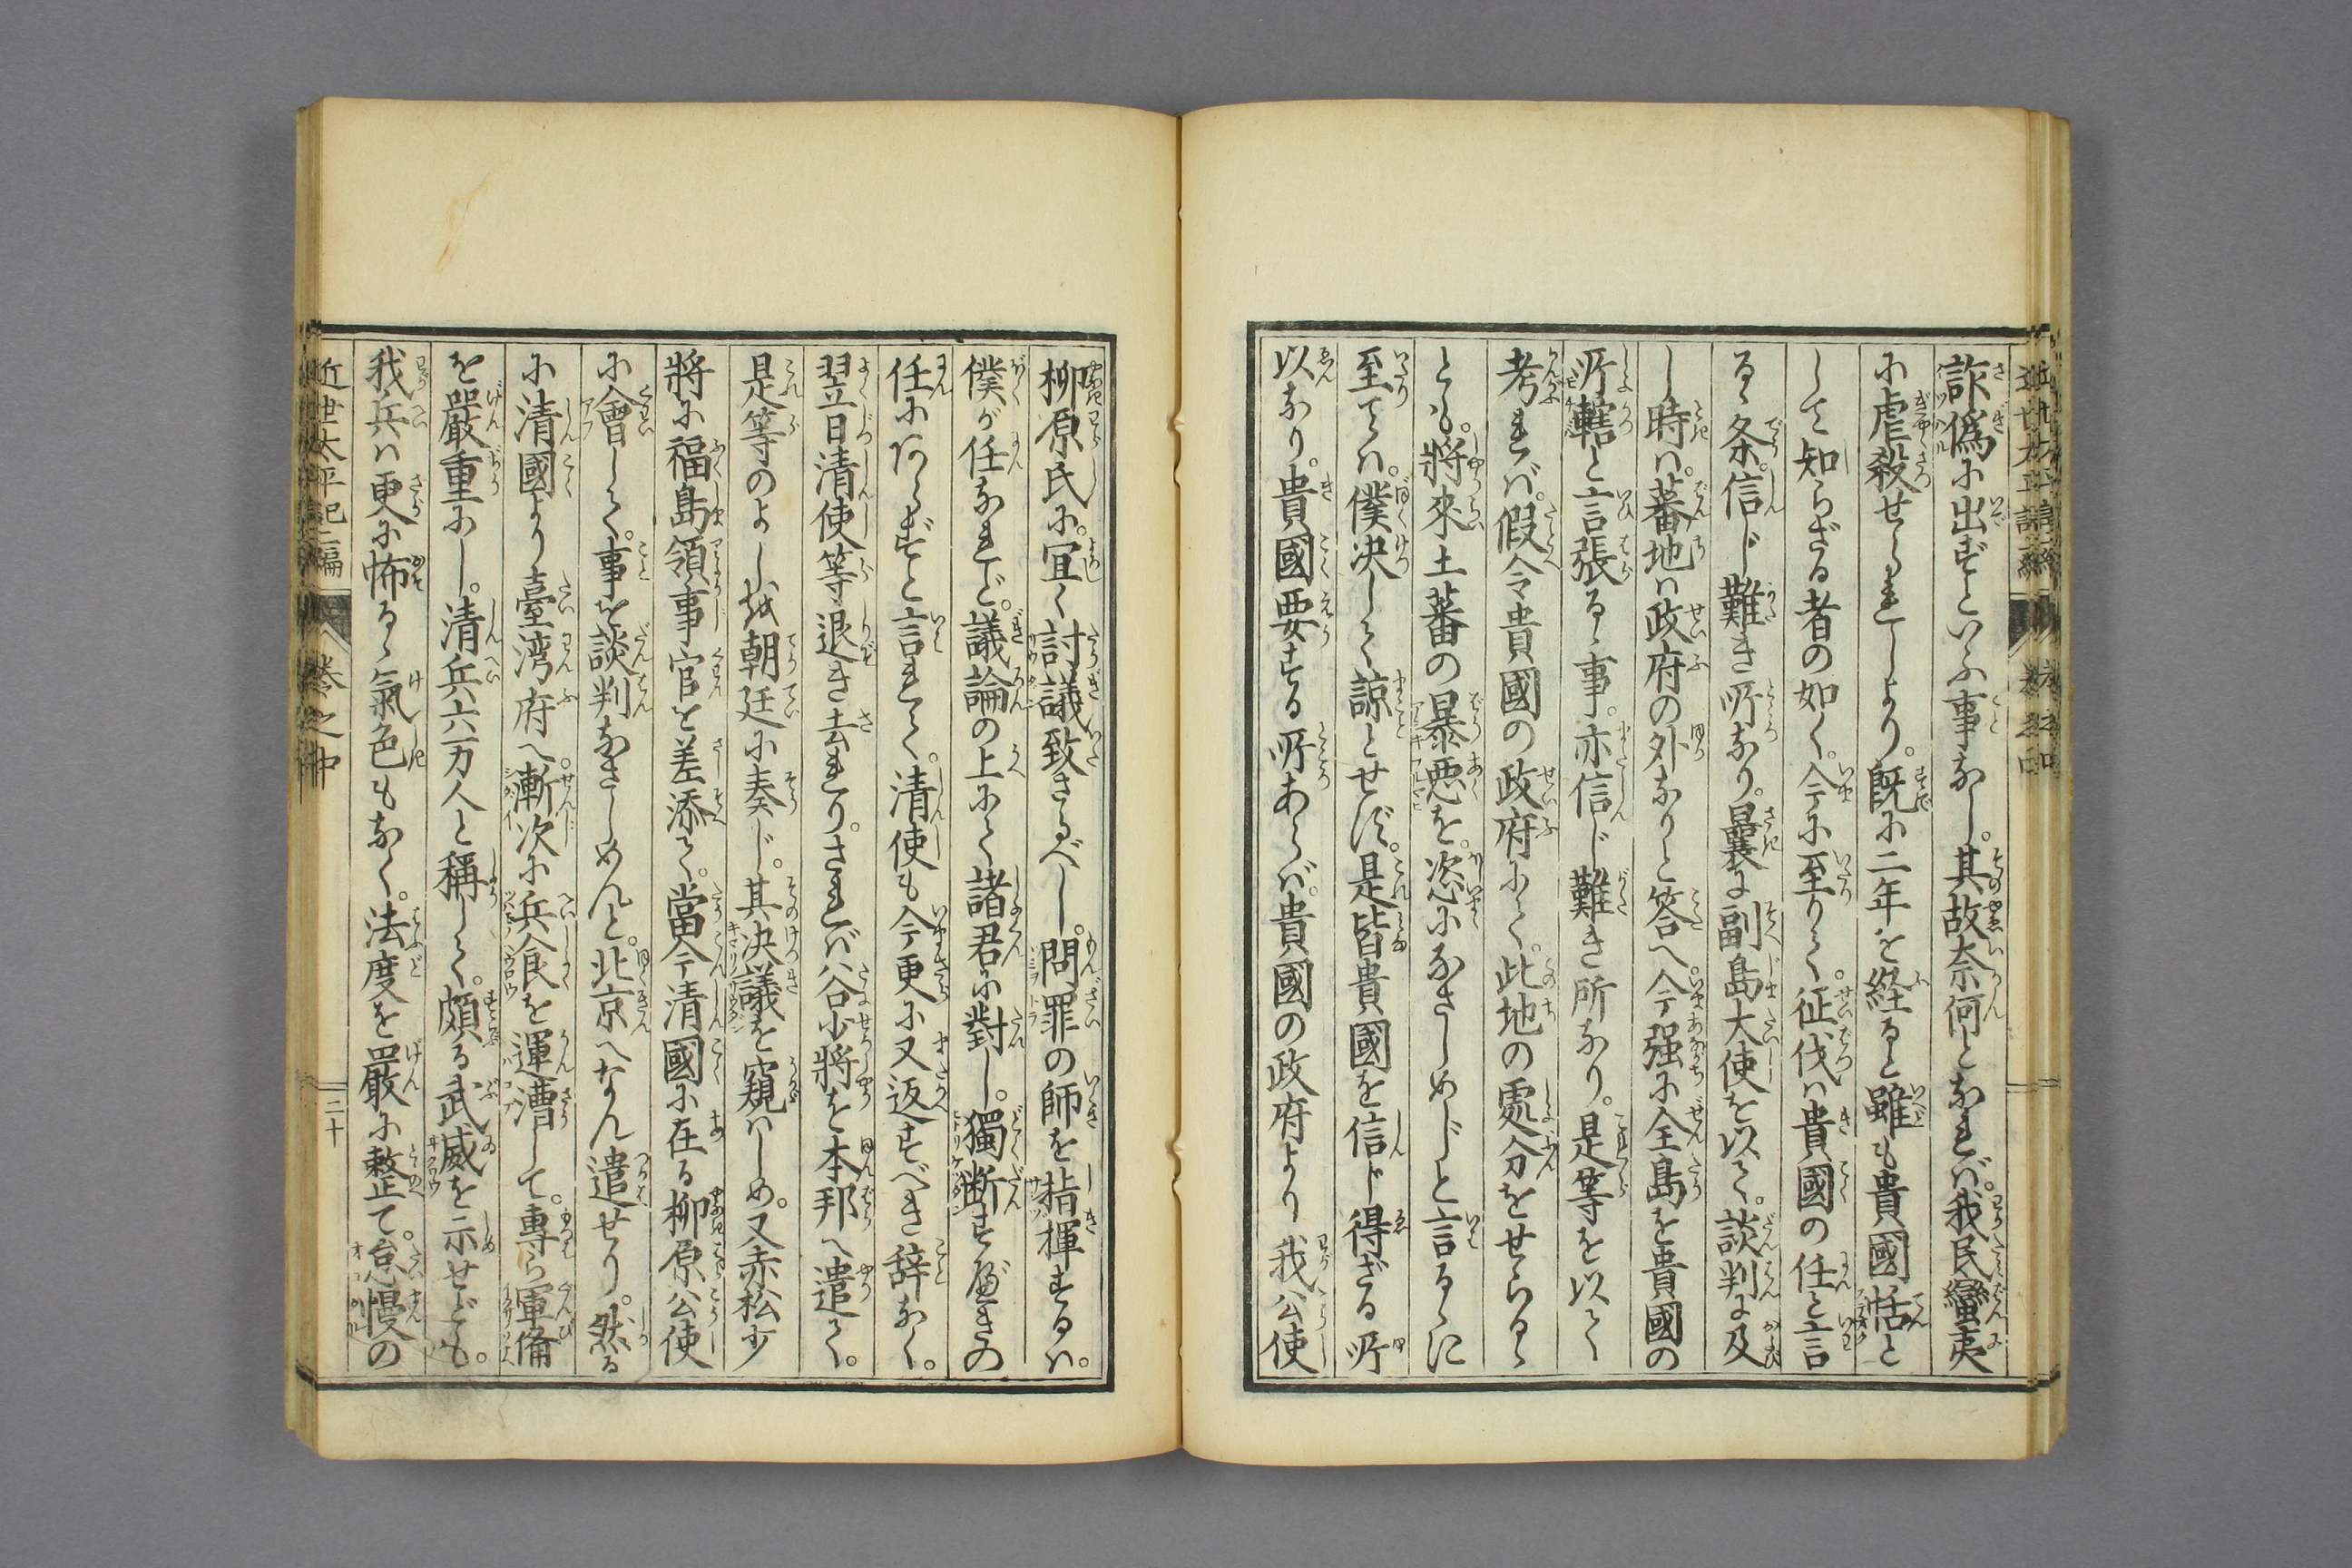 詐偽に出ずといふ事なし。其故奈何となれば。我民蠻夷
に虐殺せられしより。既に二年を経ると雖も貴國恬と
して知らざる者の如く。今に至りて。征伐は貴國の任と言
るゝ条。信じ難き所なり。曩に副島大使を以て。談判に及
し時は。蕃地は政府の外なりと答へ。今强に全島を貴國の
所轄と言張るゝ事。亦信じ難き所なり。是等を以て
考れば。假令貴國の政府にて。此地の處分をせらるゝ
とも。將來土蕃の暴悪を。恣になさしめじと言るゝに
至ては。僕决して諒とせず。是皆貴國を信じ得ざる所
以なり。貴國要する所あらば。貴國の政府より我公使
柳原氏に。冝く討議致さるべし。問罪の師を指揮するは。
僕が任なれど。議論の上にて諸君に對し。獨断すべきの
任にあらずと言れて。清使も今更に又返すべき辞なく。
翌日清使等退き去れり。されば谷少将を本邦へ遣て。
是等のよしを朝廷に奏じ。其决議を窺はしめ。又赤松少
將に福島領事官を差添て。當今清國に在る柳原公使
に會して。事を談判なさしめんと。北京へなん遣せり。然る
に清國より臺湾府へ。漸次に兵食を運漕して。專ら軍備
を嚴重にし。清兵六万人と稱して。頗る武威を示せども。
我兵は更に怖るゝ氣色もなく。法度を嚴に整て。怠慢の
近世太平記二編 卷之中 二十